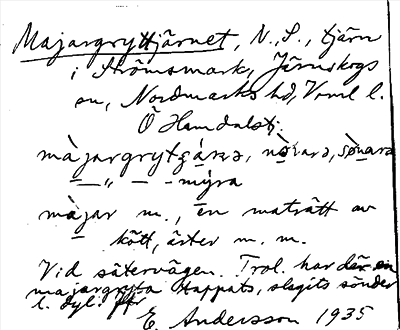 Majargryttjärnet, N., S., tjärn
i Strömsmark, Järnskogs
sn, Nordmarks hd, Vrml l.
Ö Hamdalstj.
màjargrytgá̱rə, nò̱rarə, sø̀narə
— „ — – mýra
màjar m., en maträtt av
kött, ärter m. m.
Vid sätervägen. Trol. har där en
majargryta stappats, slagits sönder
l. dyl. Jfr
E. Andersson 1935